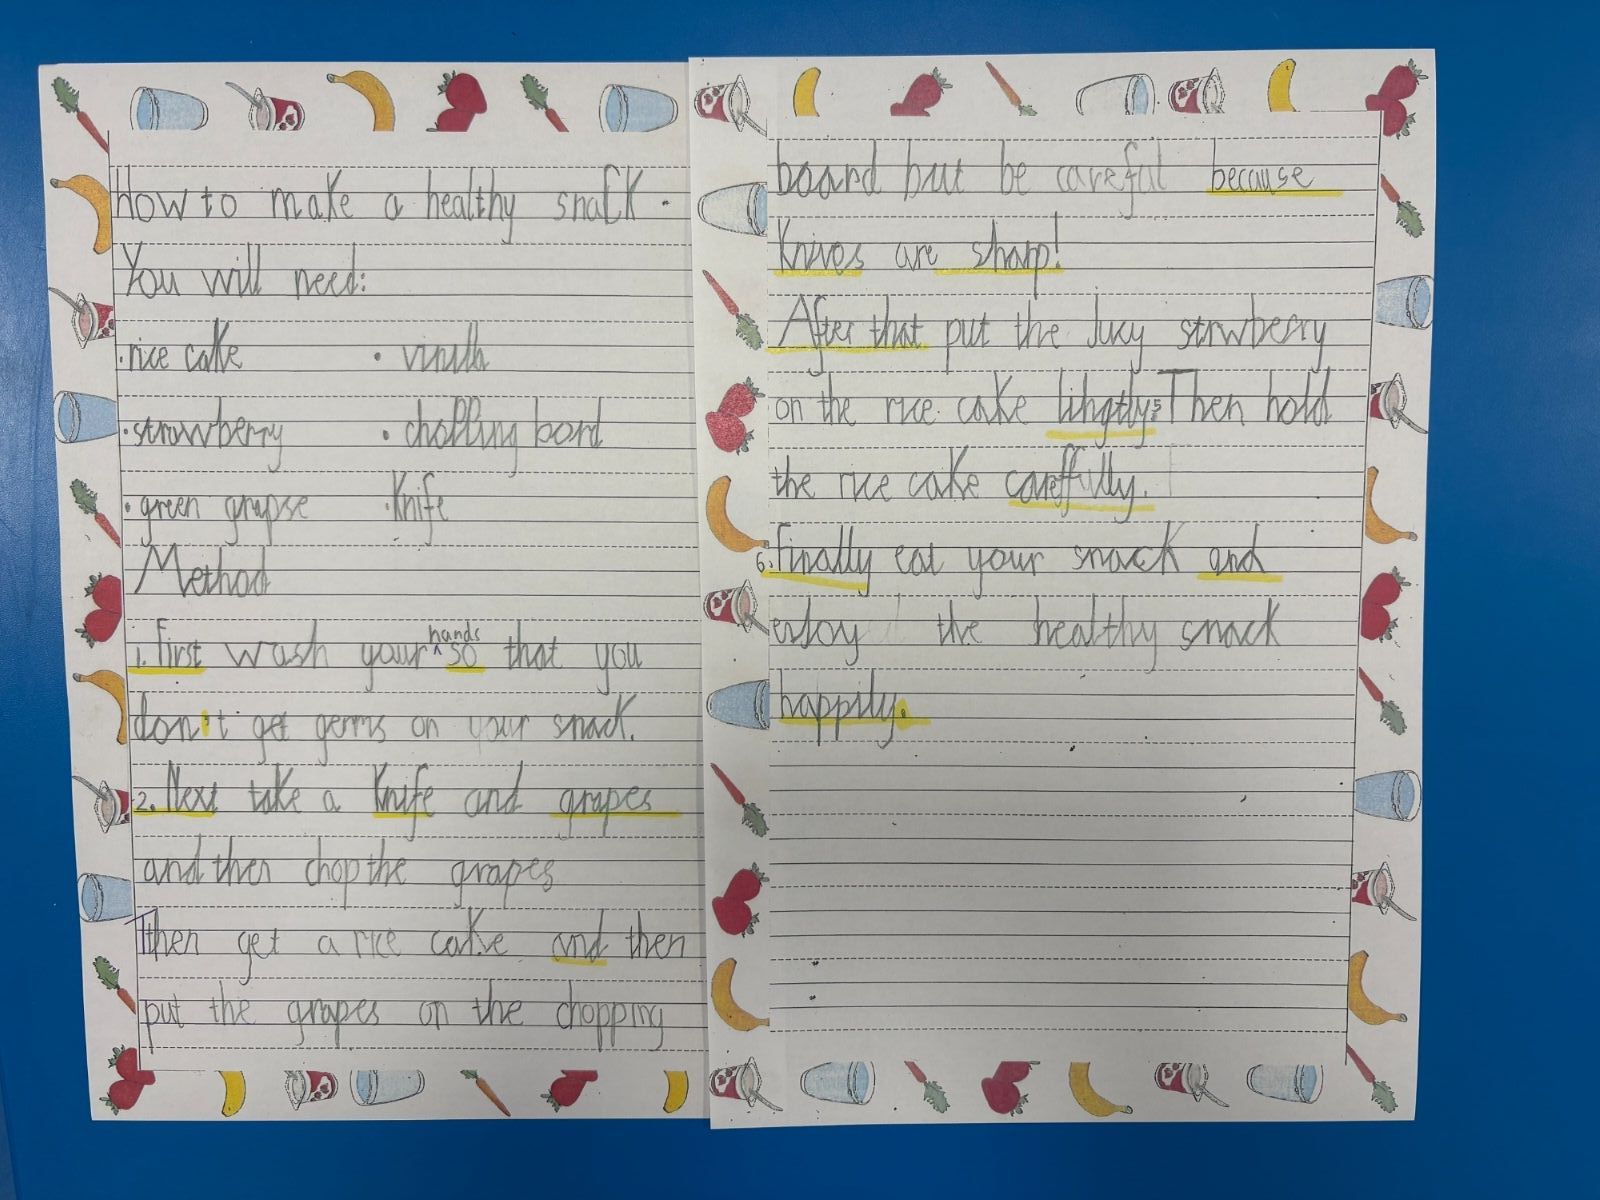 How to make a healthy snack.
You will need:
·rice cake
·strawberry
·green grapse
·chopping bord
·Knife
Method
1. First wash your hands so that you
don't get germs on your snack.
2. Next take a Knife and grapes
and then chop the grapes
Then get a rice cake and then
put the grapes on the chopping
board but be careful because
Knives are sharp!
After that put the Jucy strwberry
on the rice cake lihgtly. Then hold
the rice cake careffully.
6. Finally eat your snack and
enJoy the healthy snack
happily.